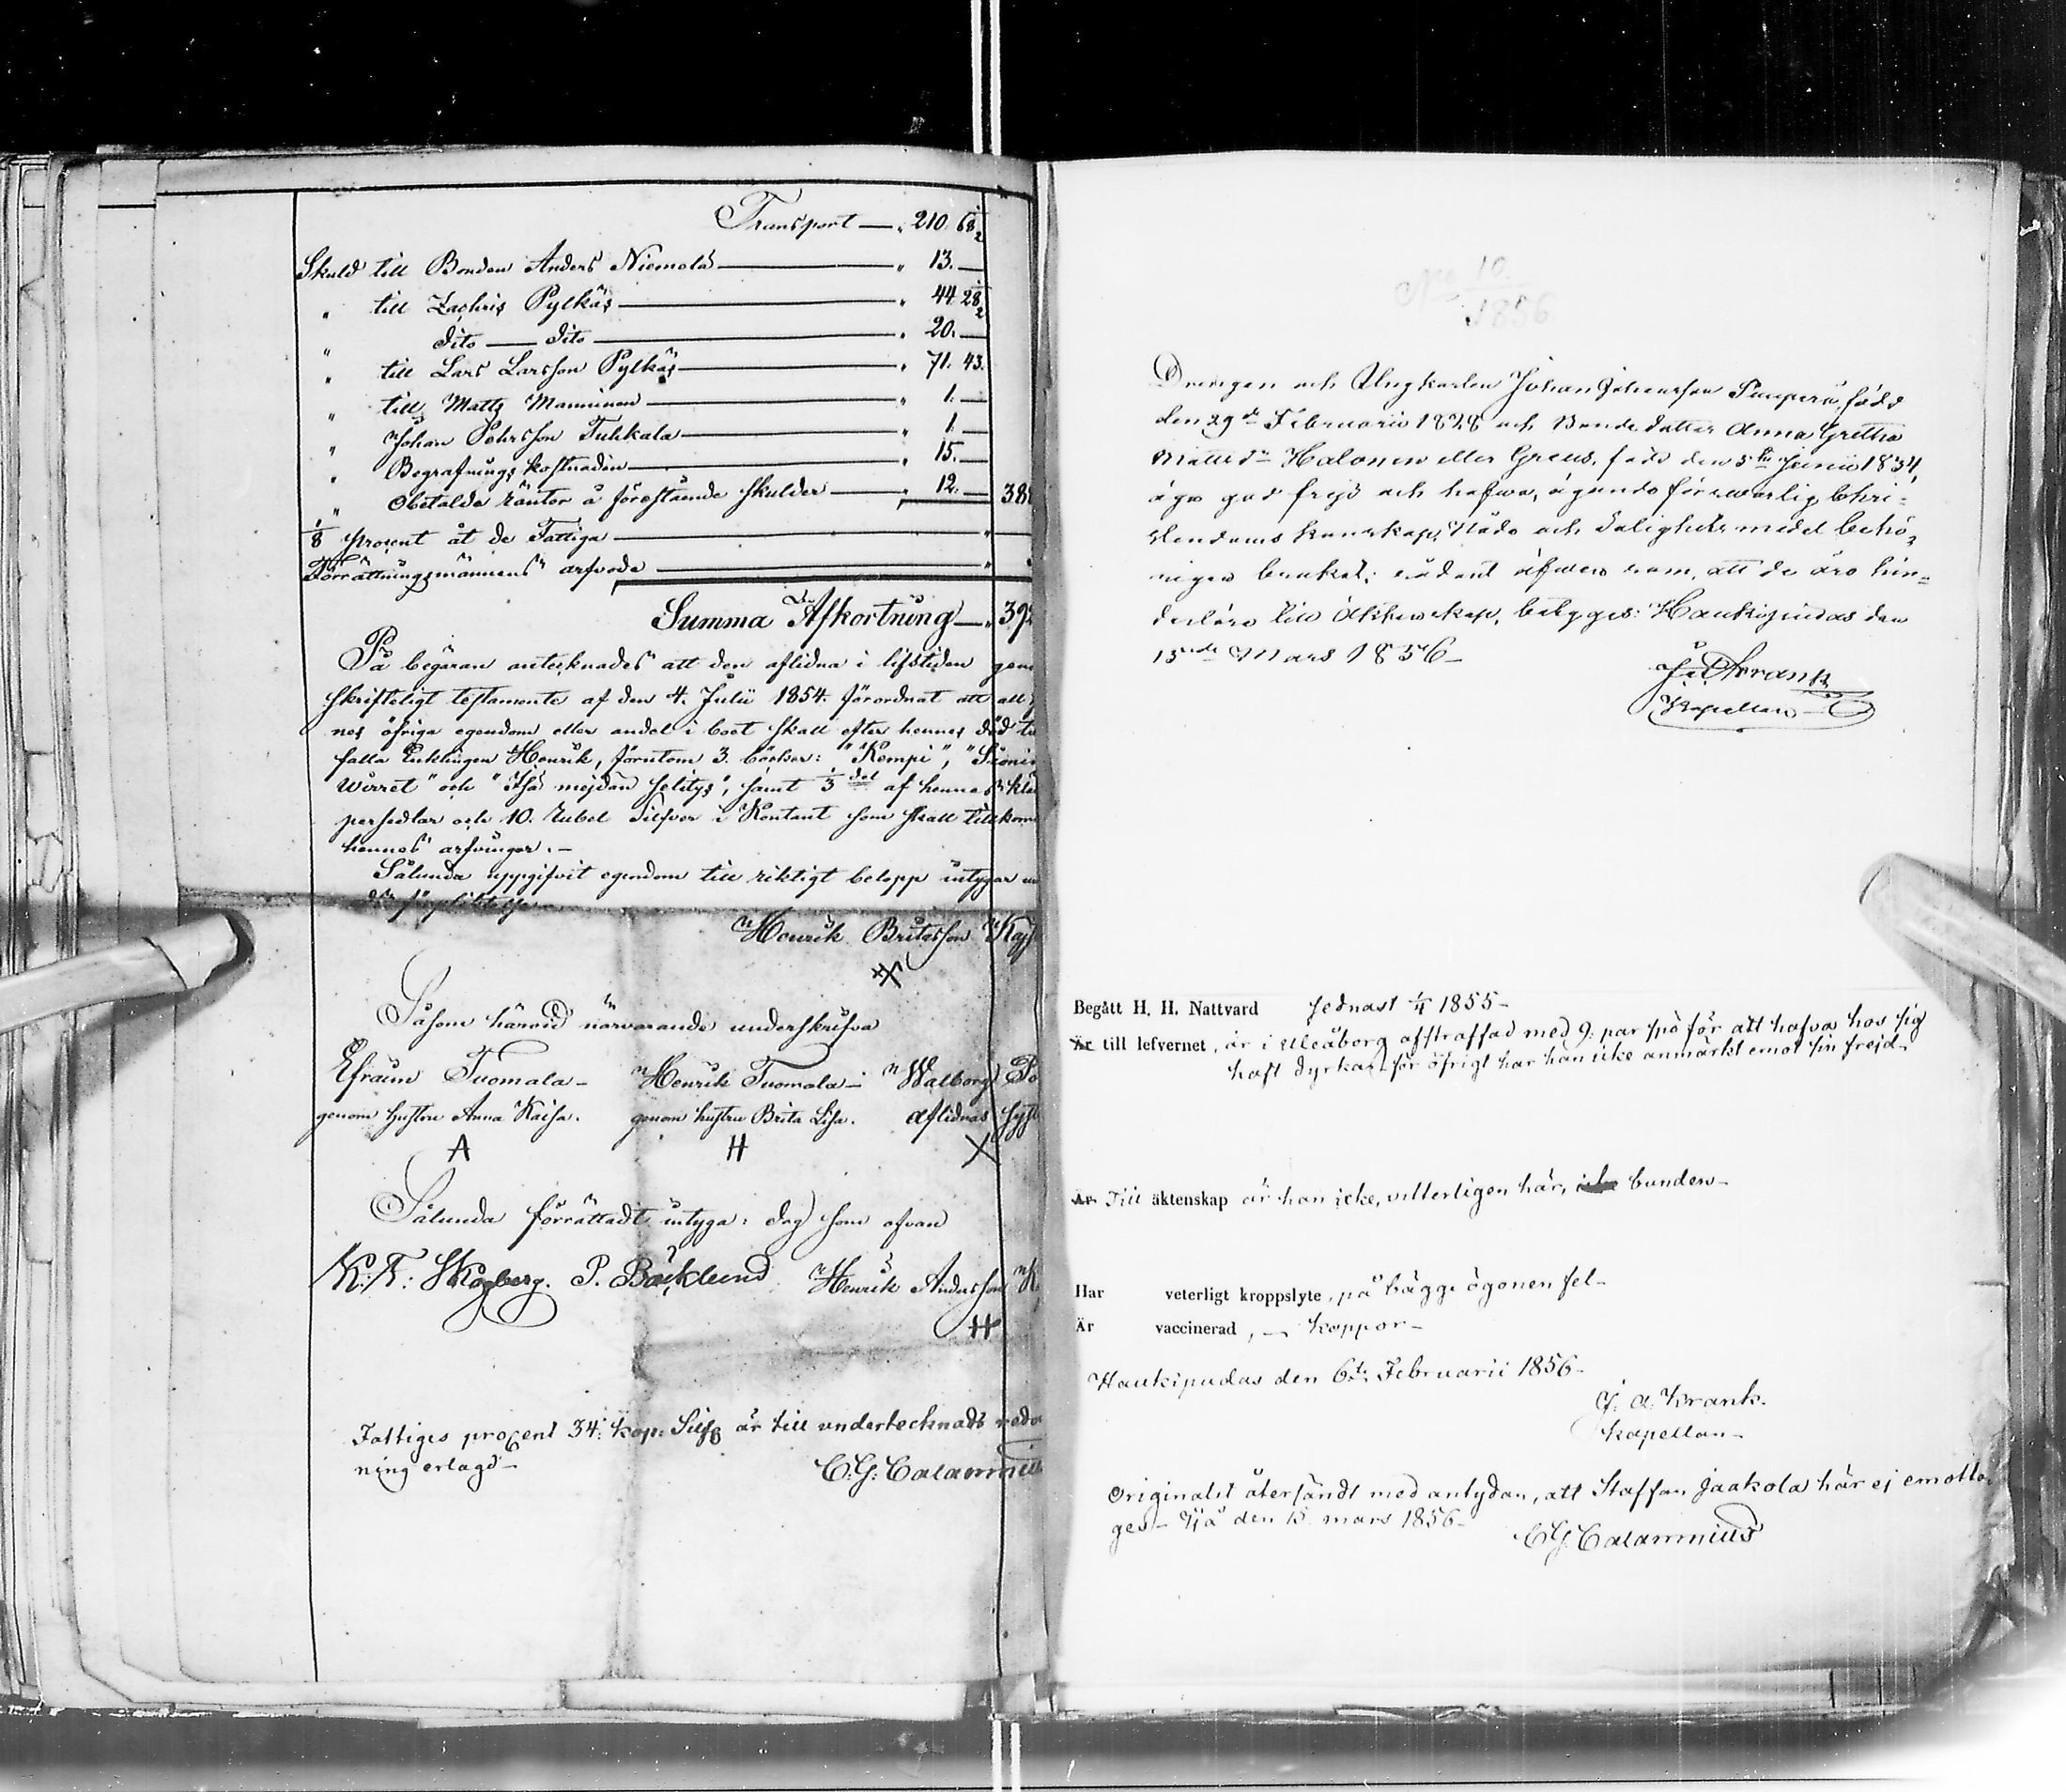 Transport — „ 210. 68 1/2
Skuld till Bonden Anders Niemelä — „ 13. —
„ till Zachris Pylkäs — „ 44. 28 1/2
„ dito — dito — „ 20. —
„ till Lars Larsson Pylkäs — „ 71. 43.
„ till Matts Manninen — „ 1. —
„ Johan Pehrsson Tuhkala — „ 1. —
„ Begrafnings kostnaden — „ 15. —
„ Obetalde räntor å förestående skulder — „ 12. — 38
1/8 procent åt de Fattiga — „
Förrättningsmännens arfvode — „
Summa Afkortning — „ 39
På begäran antecknades att den aflidna i lifstiden gen
skrifteligt testamente af den 4. Julii 1854. förordnat att all
nes öfriga egendom eller andel i boet skall efter hennes död ti
falla Enklingen Henrik, förutom 3. böcker: "Kempi",
Wirret" och "Isä mejdän selitys", samt 1/3 del af hennes klä
persedlar och 10. Rubel Silfver i Kontant som skall tillkom
hennes arfvingar. —
Sålunda uppgifvit egendom till riktigt belopp intygar un
Henrik Britasson Kaj
X
Såsom härvid närvarande underskrifva
Efraim Tuomala — Henrik Tuomala — Walborg
genom hustru Anna Kaisa. genom hustru Brita Lisa. aflidnas syst
A H X
Sålunda förrättadt intyga: dag som ofvan
K: F: Skogberg. P. Bäcklund Henrik Andersson
H
Fattiges procent 34. kop: Silf är till undertecknads redo
ning erlagd —
C: G: Calamnius
No 10.
1856
Drengen och Ungkarlen Johan Johansson född
den 29de Februarii 1828 och Bondedotter Anna Gretha
Mattsdr Halonen eller Greus, född den 5te Junii 1834,
äga god frejd och hafva, ägande försvarlig Chri-
stendoms kunskap, Nåde och Salighets medel behö-
rigen brukat; sådant äfven som, att de äro hin-
derlöse till Äktenskap, betygges: Haukipudas den
15de Mars 1856 —
J. A. Krank
Kapellan
Begått H. H. Nattvard sednast 1/4 1855 —
Är till lefvernet, är i Uleåborg afstraffad med 9. par spö för att hafva hos sig
haft dyrkar, för öfrigt har han icke anmärkt emot sin frejd —
Är Till äktenskap är han icke, vitterligen här, bunden —
Har veterligt kroppslyte, på bägge ögonen fel —
Är vaccinerad, — koppor —
Haukipudas den 6te Februarii 1856 —
J. A. Krank.
Kapellan —
Originalet återsändt med antydan, att Staffan Jaakola här ej emotta
ges — Ijå den 15. mars 1856 —
C G Calamnius